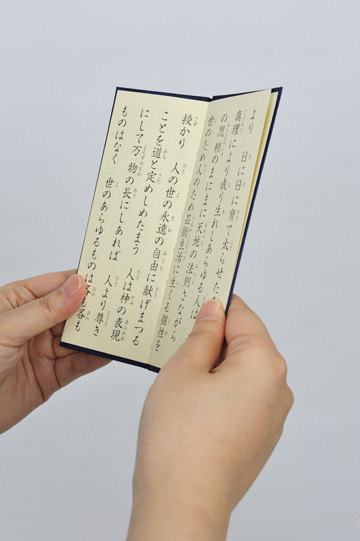 より　日に日に育て太らせたも
真理により成り生れしあらゆる人は
の恩頼のまにまに天地の法則さながら
世のため人のため芸術生活に生くる個性を
授かり　人の世の永遠の自由に献げまつる
ことを道と定めしめたまう　人は神の表現
にして万物の長にしあれば　人より尊き
ものはなく　世のあらゆるものは各も各も